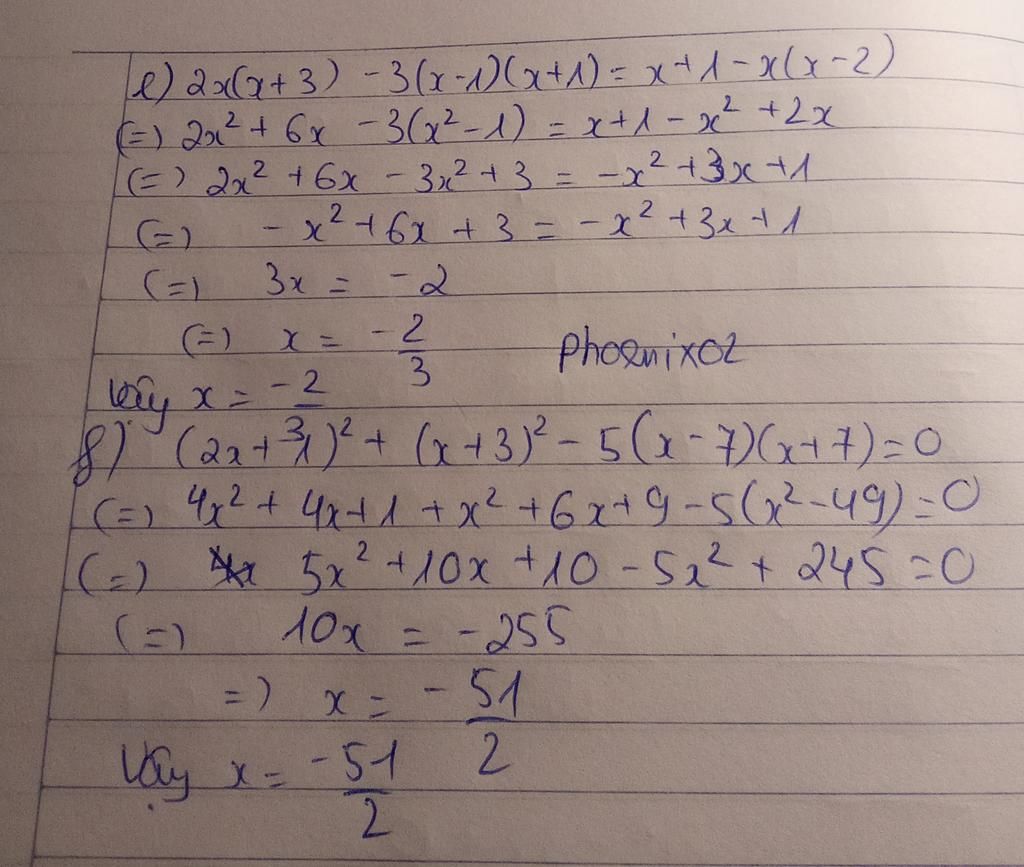 e) 2x(x+3) - 3(x-1)(x+1) = x+1 - x(x-2)
(=) 2x² + 6x - 3(x² - 1) = x+1 - x² + 2x
(=) 2x² + 6x - 3x² + 3 = -x² + 3x + 1
(=) - x² + 6x + 3 = -x² + 3x + 1
(=) 3x = -2
(=) x = -2/3
phoenixoz
Vậy x = -2/3
f) (2x+1)² + (x+3)² - 5(x-7)(x+7) = 0
(=) 4x² + 4x+1 + x² + 6x+9 - 5(x² - 49) = 0
(=) 5x² + 10x + 10 - 5x² + 245 = 0
(=) 10x = -255
=) x = -51/2
Vậy x = -51/2